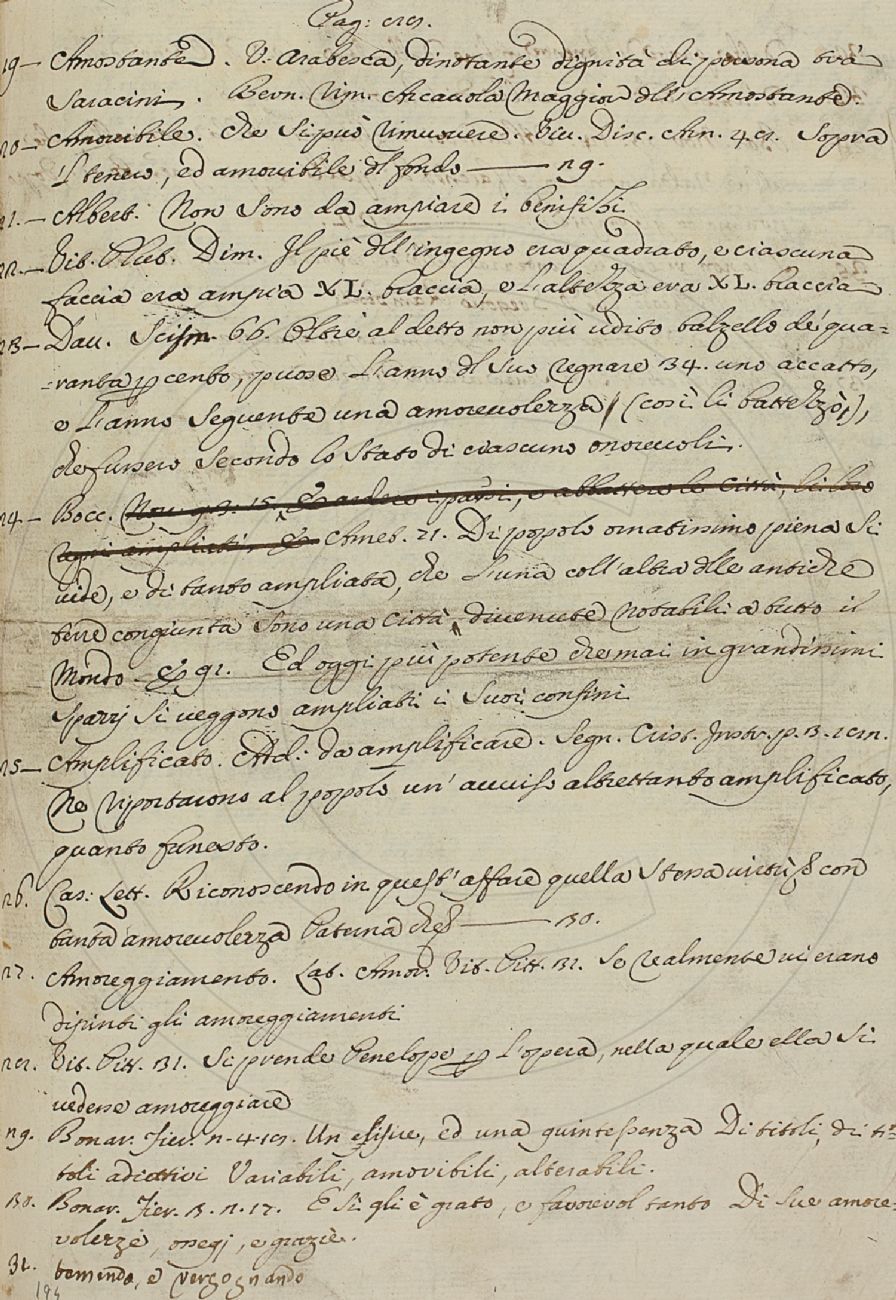 Pag:
19— Amostante. V. Arabesca, dinotante dignità di persona trà
Saracini. Bern. Rim. Arcavola Maggior dll' Amostante.
20— Amovibile. che si può rimuovere. Viv. Disc. Arn. 4 Sopra
il tenero, ed amovibile dl fondo —— 29.
21.— Albert. Non sono da ampiare i benifizi
22.— Vit. Plut. Dim. Il piè dll'ingegno era quadrato, e ciascuna
faccia era ampia XL. braccia, e l'altezza era XL. braccia
23— Dav. Scism. 66. Oltre al detto non più udito balzello de' qua=
=ranta p cento, puose l'anno dl suo regnare 34. uno accatto,
e l'anno seguente una amorevolezza (così li battezzò,),
che fussero secondo lo stato di ciascuno onorevoli.
24— Bocc. Nov. ardere i paesi, e abbattere le Città, li loro
regni ampliati, & Amet. 21. Di popolo ornatissimo piena si
vide, e di tanto ampliata, che l'una coll'altra dlle antiche
terre congiunta sono una Città, divenute notabili a tutto il
Mondo & 91. Ed oggi più potente che mai in grandissimi
spazzj si veggono ampliati i suoi confini
25— Amplificato. Add: da amplificare. Segn. Crist. Instr. p. 3.
Ne riportarono al popolo un' avviso altrettanto amplificato,
quanto funesto.
26. Cas: Lett. Riconoscendo in quest'affare quella stessa virtù, & con
tanta amorevolezza Paterna che & —— 30.
27. Amoreggiamento. Lat. Amor. Vit. Pitt. 31. Se realmente vi erano
dipinti gli amoreggiamenti
28. Vit. Pitt. 31. Si prende Penelope p l'opera, nella quale ella si
vedesse amoreggiare
29. Bonar. Fier. 2.4.18. Un elisire, ed una quintessenza Di titoli, di ti=
toli adiettivi Variabili, amovibili, alterabili.
30. Bonar. Fier. 3. 2. 17. E si gli è grato, e favorevol tanto Di sue amore=
volezze, ossegj, e grazie.
31. temendo, e vergognando
194